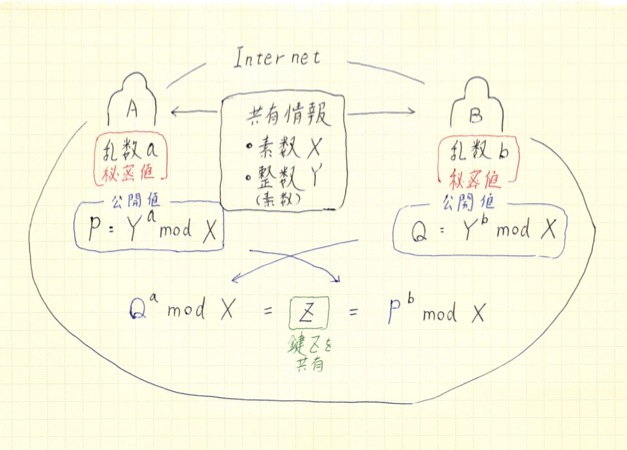 Internet
A
共有情報
・素数 X
・整数 Y
(素数)
B
乱数 a
秘密値
乱数 b
秘密値
公開値
P = Y^a mod X
公開値
Q = Y^b mod X
Q^a mod X = Z = P^b mod X
鍵Zを
共有